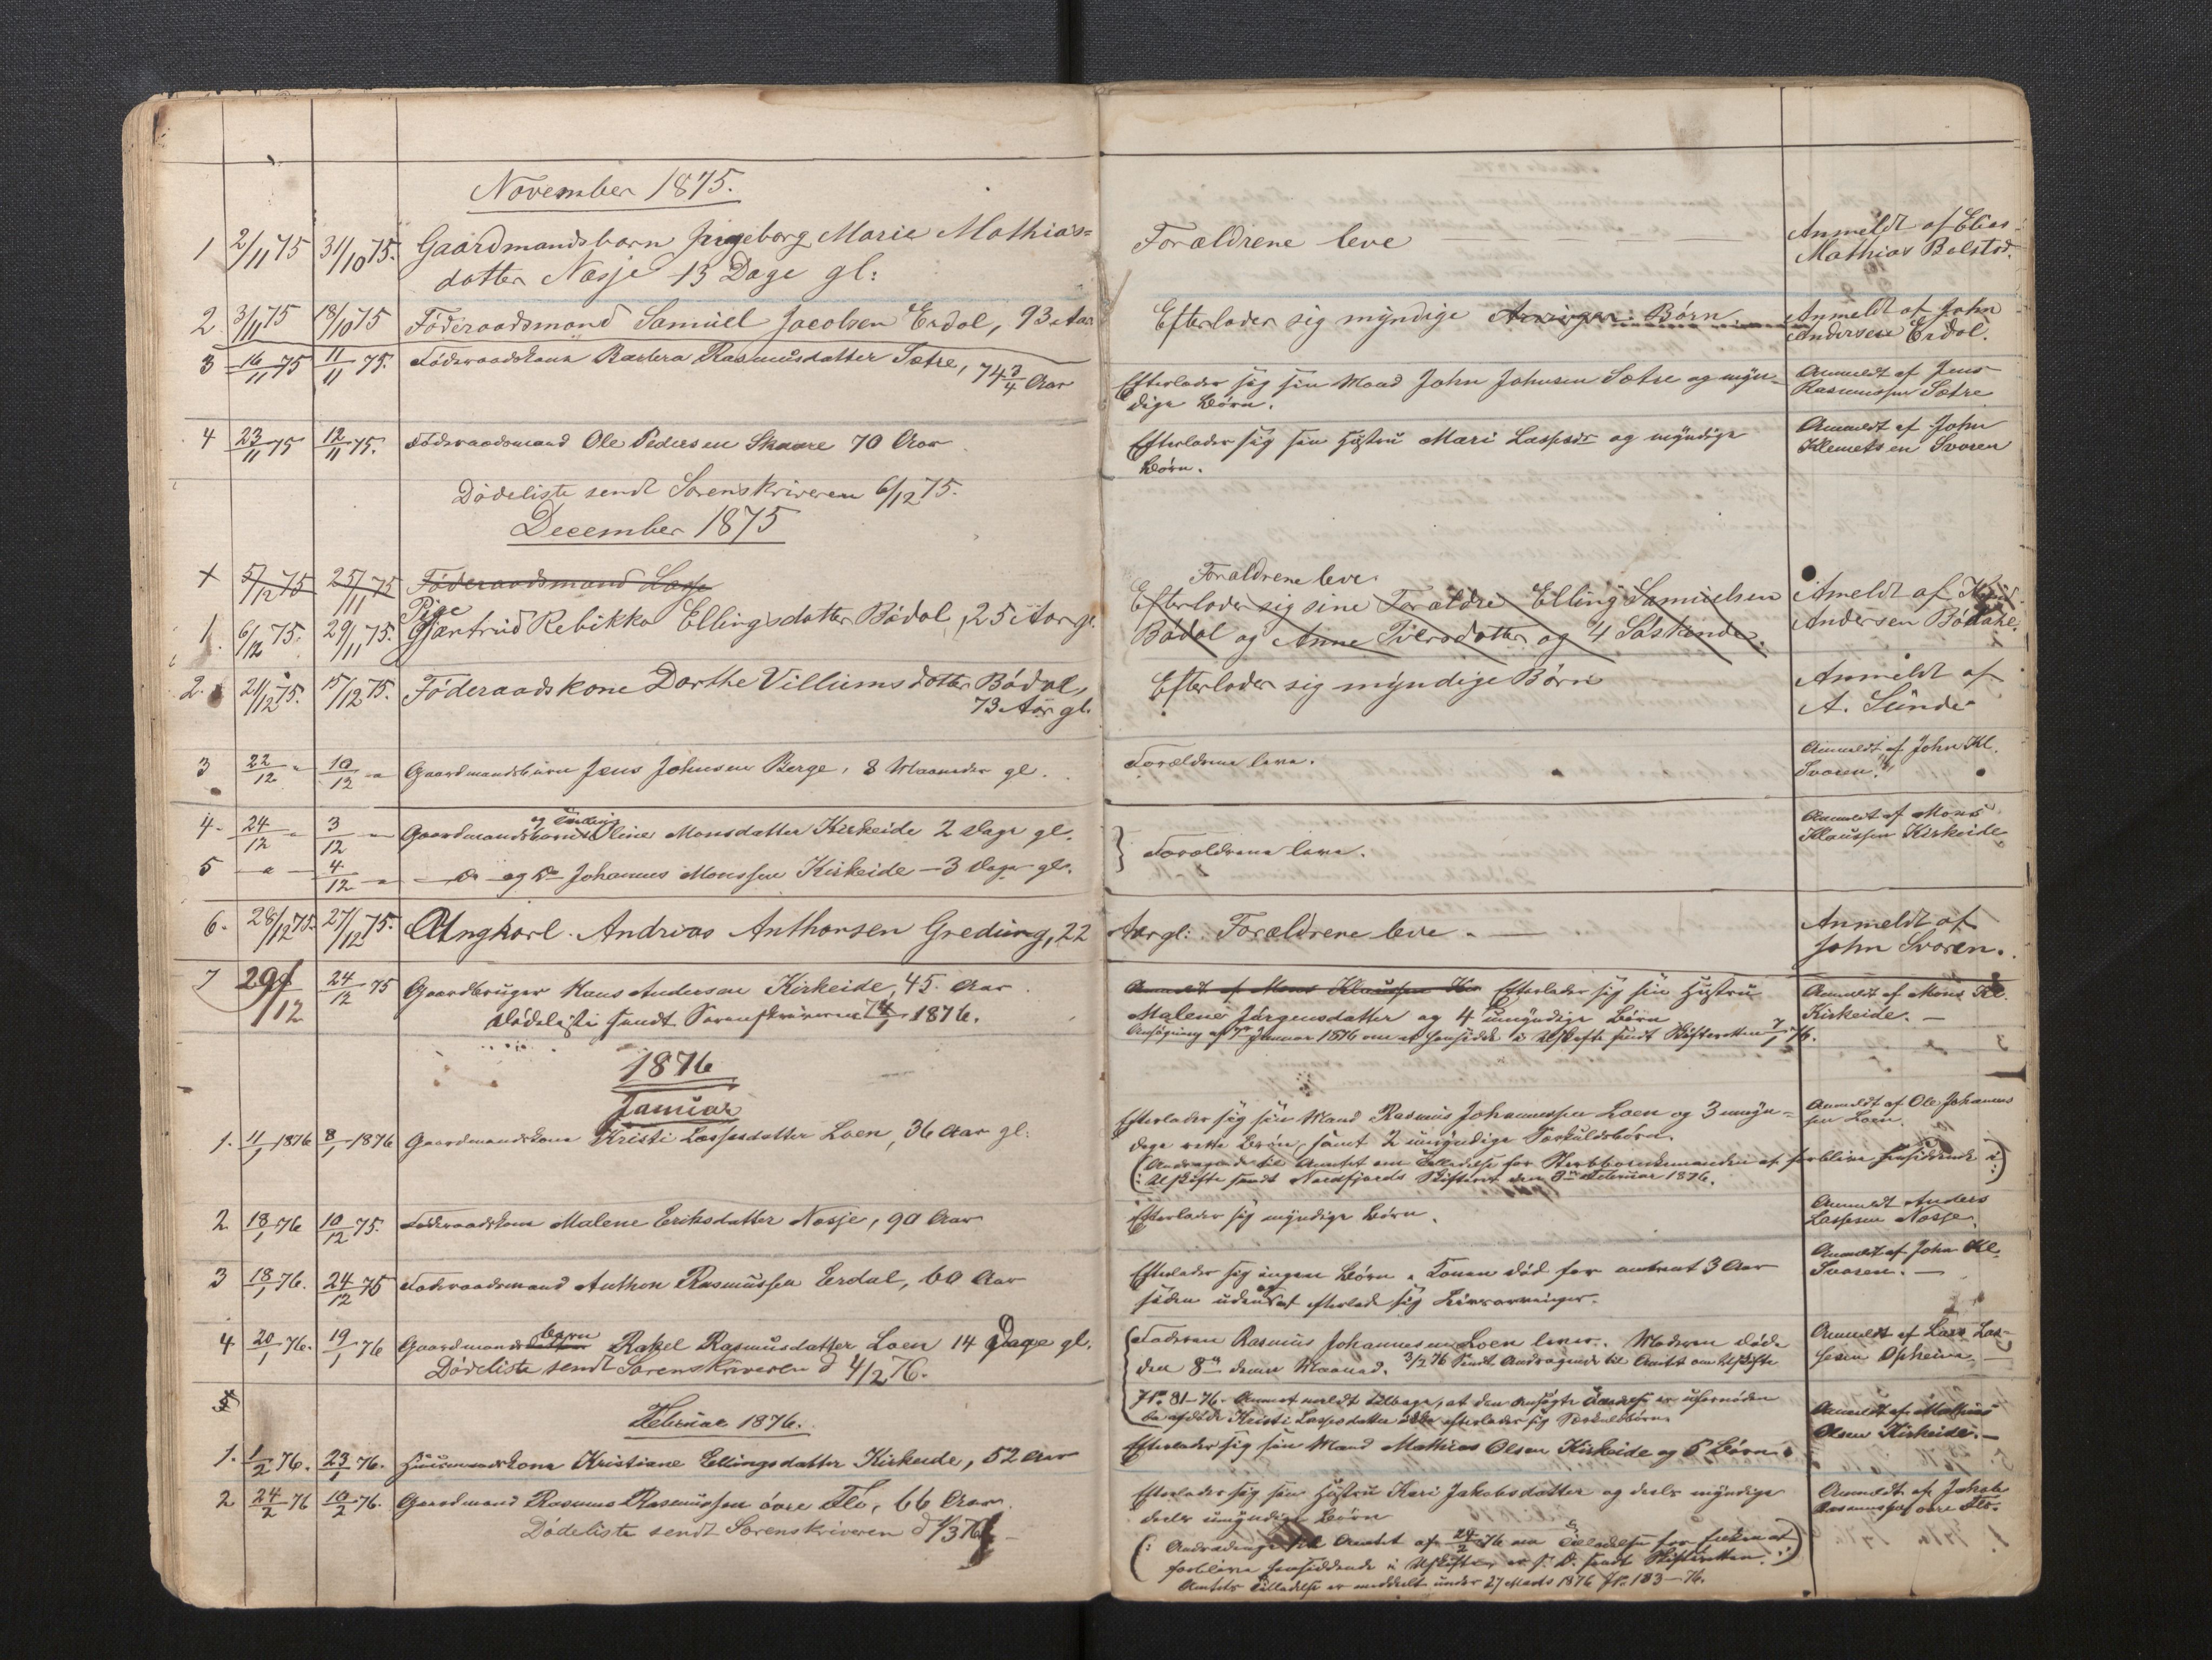 November 1875.
1 2/11 75 31/10 75. Gaardmandsbarn Ingeborg Marie Mathias=
datter Nesje 13 Dage gl:
Forældrene leve
Anmeldt af Elias
Mathias Bolstad.
2. 3/11 75 18/10 75 Föderaadsmand Samuel Jacobsen Erdal, 93 Aar
Efterlader sig myndige Arvinger: Börn
Anmeldt af John
Andersen Erdal.
3 16/11 75 11/11 75. Föderaadskone Barbra Rasmusdatter Sætre, 74 3/4 Aar
Efterlader sig sin Mand John Johnsen Sætre og myn-
dige Børn.
Anmeldt af Jens
Rasmussen Sætre
4 23/11 75 12/11 75. Föderaadsmand Ole Pedersen Skaare 70 Aar
Efterlader sig sin Hustru Mari Lassesdr og myndige
Børn.
Anmeldt af John
Klemetsen Svoren
Dödeliste sendt Sorenskriveren 6/12 75.
December 1875
+ 5/12 75 25/11 75 Föderaadsmand Lasse
Pige
1. 6/12 75. 29/11 75. Gjærtrud Rebikka Ellingsdatter Bödal, 25 Aar gl.
Forældrene leve
Efterlader sig sine Forældre Elling Samuelsen
Bödal og Anne Iversdatter og 4 Söskende.
Ameldt af
Andersen Bödal
2. 21/12 75. 15/12 75. Föderaadskone Dorthe Villumsdatter Bödal,
73 Aar gl.
Efterlader sig myndige Börn
Anmeldt af
A. Sunde
3 22/12 " 10/12 " Gaardmandsbarn Jens Johnsen Berge, 8 Maaneder gl.
Forældrene leve.
Anmeldt af John Kl.
Svoren.
4. 24/12 " 3/12 " Gaardmandsbarn og Tvilling Oline Monsdatter Kirkeide 2 Dage gl.
5 " 4/12 " do og do Johannes Monssen Kirkeide 3 Dage gl.
Forældrene leve.
Anmeldt af Mons
Klaussen Kirkeide
6. 28/12 75. 27/12 75. Ungkarl Andreas Anthonsen Greding, 22
Aar gl: Forældrene leve.
Anmeldt af
John Svoren.
7 29/12 24/12 75 Gaardbruger Hans Andersen Kirkeide, 45 Aar.
Dödeliste sendt Sorenskriveren 7/1 1876.
Anmeldt af Mons Klaussen Kir Efterlader sig sin Hustru
Malene Jørgensdatter og 4 umyndige Børn
Ansøgning af 7de Januar 1876 om at hensidde i Uskifte sendt Skifteretten 7/1 76.
Anmeldt af Mons Kl.
Kirkeide.
1876
Januar
1. 11/1 1876 8/1 1876 Gaardmandskone Kristi Lassesdatter Loen, 36 Aar gl.
Efterlader sig sin Mand Rasmus Johannessen Loen og 3 umyn=
dige rette Børn, samt 2 umyndige Særkuldsbørn.
(Andragende til Amtet om Tilladelse for Sterbboenkemanden at forblive hensiddende i
Uskifte sendt Nordfjords Skifteret den 3die Februar 1876.)
Anmeldt af Ole Johannes
sen Loen.
2 18/1 76 10/12 75. Föderaadskone Malene Eriksdatter Nesje, 90 Aar
Efterlader sig myndige Børn.
Anmeldt Anders
Lassesen Nesje.
3 18/1 76. 24/12 75 Föderaadsmand Anthon Rasmussen Erdal, 60 Aar
Efterlader sig ingen Børn. Konen død for omtrent 3 Aar
siden uden at efterlade sig Livsarvinger.
Anmeldt af John Kl.
Svoren.
4 20/1 76. 19/1 76 Gaardmandsbarn Rakel Rasmusdatter Loen 14 Dage gl.
Dödeliste sendt Sorenskriveren d 4/2 76.
Faderen Rasmus Johannesen Loen lever. Moderen døde
den 8de denne Maaned. 3/2 76 Sendt Andragende til Amtet om Uskifte
Jr. 81-76. Amtet meldt tilbage, at den ansøgte er ufornøden
da afdøde Kristi Lassesdatter ikke efterlader sig Særkuldbørn.
Anmeldt af Lars Las-
sesen Opheim
5
Februar 1876.
1. 1/2 76. 23/1 76. Huusmandskone Kristiane Ellingsdatter Kirkeide, 52 Aar
Efterlader sig sin Mand Mathias Olsen Kirkeide og 5 Børn
Anmeldt af Mathias
Olsen Kirkeide.
2 24/2 76 10/2 76. Gaardmand Rasmus Rasmussen övre Flo, 66 Aar.
Dödeliste sendt Sorenskriveren d 4/3 76
Efterlader sig sin Hustru Kari Jakobsdatter og dels myndige
dels umyndige Børn
(: Andragende til Amtet af 24/2 76 om Tilladelse for Enken at
forblive hensiddende i Uskifte er s. D. sendt Skifteretten. :)
Amtets Tilladelse er meddelt under 27 Marts 1876 Jr. 183-76.
Anmeldt af Jakob
Rasmussen övre Flo.